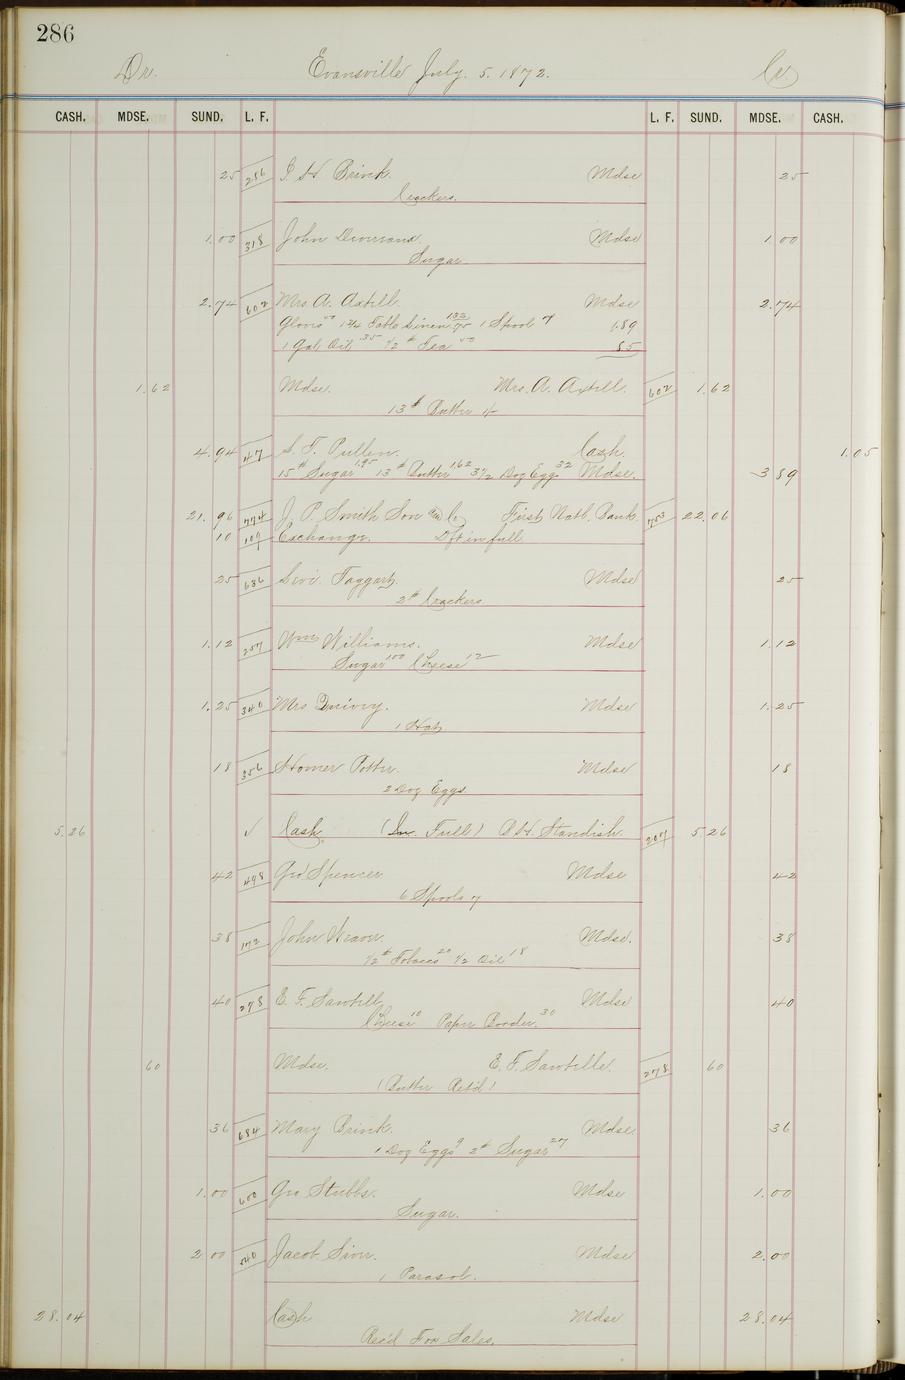 286
Dr. Evansville July. 5. 1872. Cr.
CASH. MDSE. SUND. L. F. L. F. SUND. MDSE. CASH.
25 286 Brink. Mdse 25
Crackers.
1.00 318 John Mdse 1.00
Sugar
2.74 602 Mrs. A. Axtell. Mdse 2.74
Gloves 50 1 3/4 Table Linen 75 1.32 1 Spool 7 1.89
1 Gal Oil 35 1/2 # Tea 50 85
1.62 Mdse. Mrs. A. Axtell. 602 1.62
13 # Butter
4.94 47 S. F. Pullen. Cash. 1.05
15 # Sugar 1.95 13 # Butter 1.62 3 1/2 Doz Eggs 32 Mdse. 3 89
21.96 774 J. P. Smith Son and Co First Natl. Bank. 753 22.06
10 109 Exchange. Dft in full
25 636 Levi Taggart. Mdse 25
2 # Crackers
1.12 257 Wm Williams. Mdse 1.12
Sugar 100 Cheese 12
1.25 340 Mrs Quivey. Mdse 1.25
1 Hat
18 356 Homer Potter. Mdse 18
2 Doz Eggs
5.26 √ Cash. (In Full) Standish. 207 5.26
42 498 Geo Spencer Mdse 42
6 Spools 7
38 172 John Weaver. Mdse. 38
1/2 # Tobacco 20 1/2 Oil 18
40 278 E. F. Sawtell Mdse 40
Cheese 10 Paper Border. 30
60 Mdse. E. F. Sawtelle. 278 60
(Butter Ret'd)
36 684 Mary Brink. Mdse 36
1 Doz Eggs 9 2 # Sugar 27
1.00 600 Geo Stubbs. Mdse 1.00
Sugar.
2 00 540 Jacob Mdse 2.00
1 Parasol.
28.04 Cash Mdse 28.04
Rec'd For Sales.